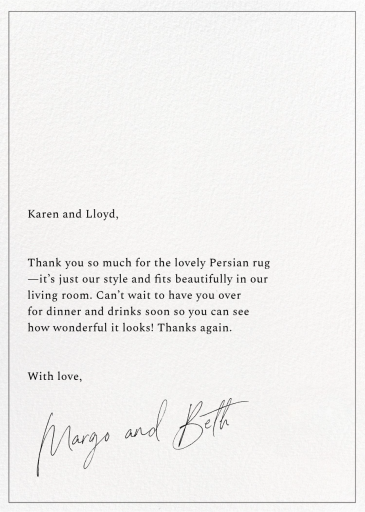 Karen and Lloyd,
Thank you so much for the lovely Persian rug
—it's just our style and fits beautifully in our
living room. Can't wait to have you over
for dinner and drinks soon so you can see
how wonderful it looks! Thanks again.
With love,
Margo and Beth